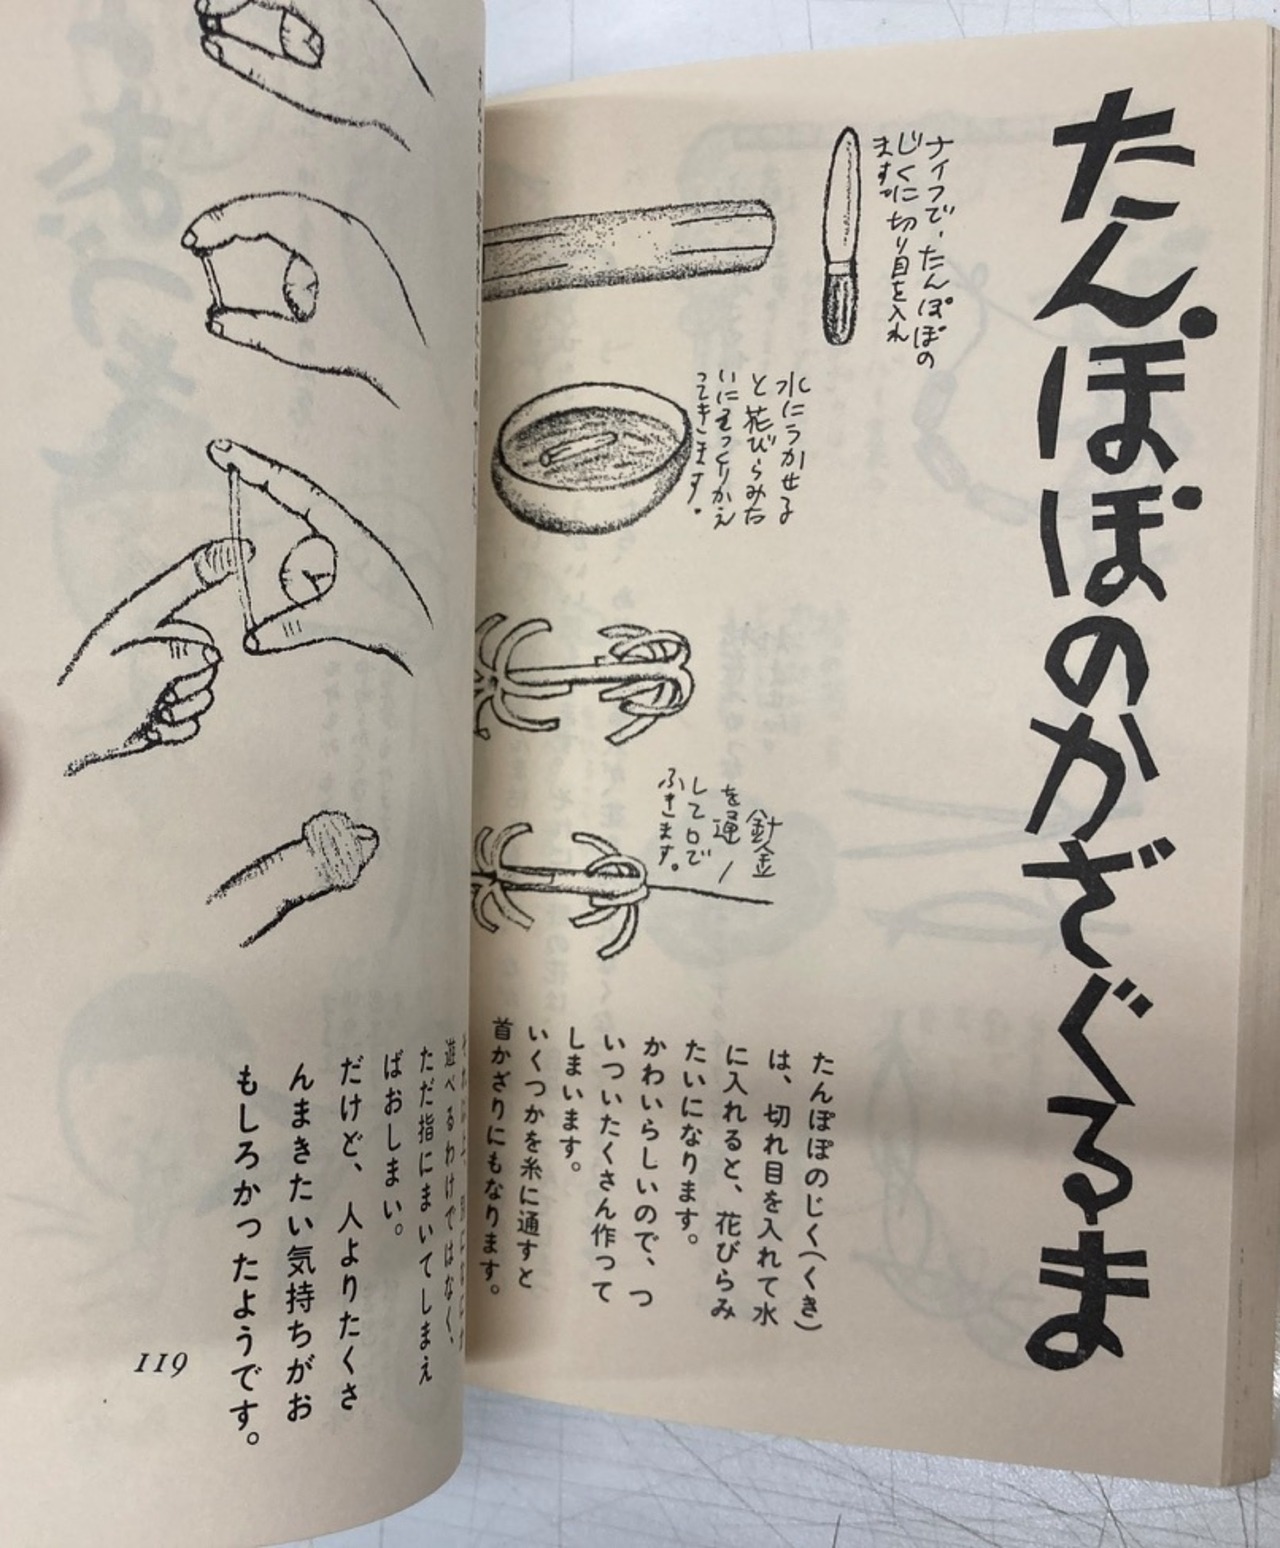 たんぽぽのかざぐるま
ナイフで、たんぽぽの
じくに切り目を入れ
ます。
水にうかせる
と花びらみた
いにそっくりかえ
ってきます。
針金
を通
して口で
ふきます。
たんぽぽのじく(くき)
は、切れ目を入れて水
に入れると、花びらみ
たいになります。
かわいらしいので、つ
いついたくさん作って
しまいます。
いくつかを糸に通すと
首かざりにもなります。
遊べるわけではなく、
ただ指にまいてしまえ
ばおしまい。
だけど、人よりたくさ
んまきたい気持ちがお
もしろかったようです。
119